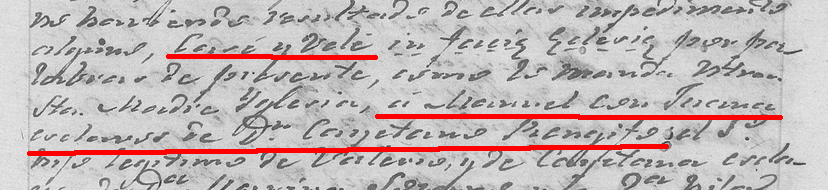 no haviendo resultado de ellas impedimento
alguno, Casé y Velé in facie Eclesie por pa
labras de presente, como lo manda Ntra.
Sta. Madre Yglesia, á Manuel con Juana
esclavos de Dn. Cayetano
hijo legitimo de Valerio, y de Cayetana escla